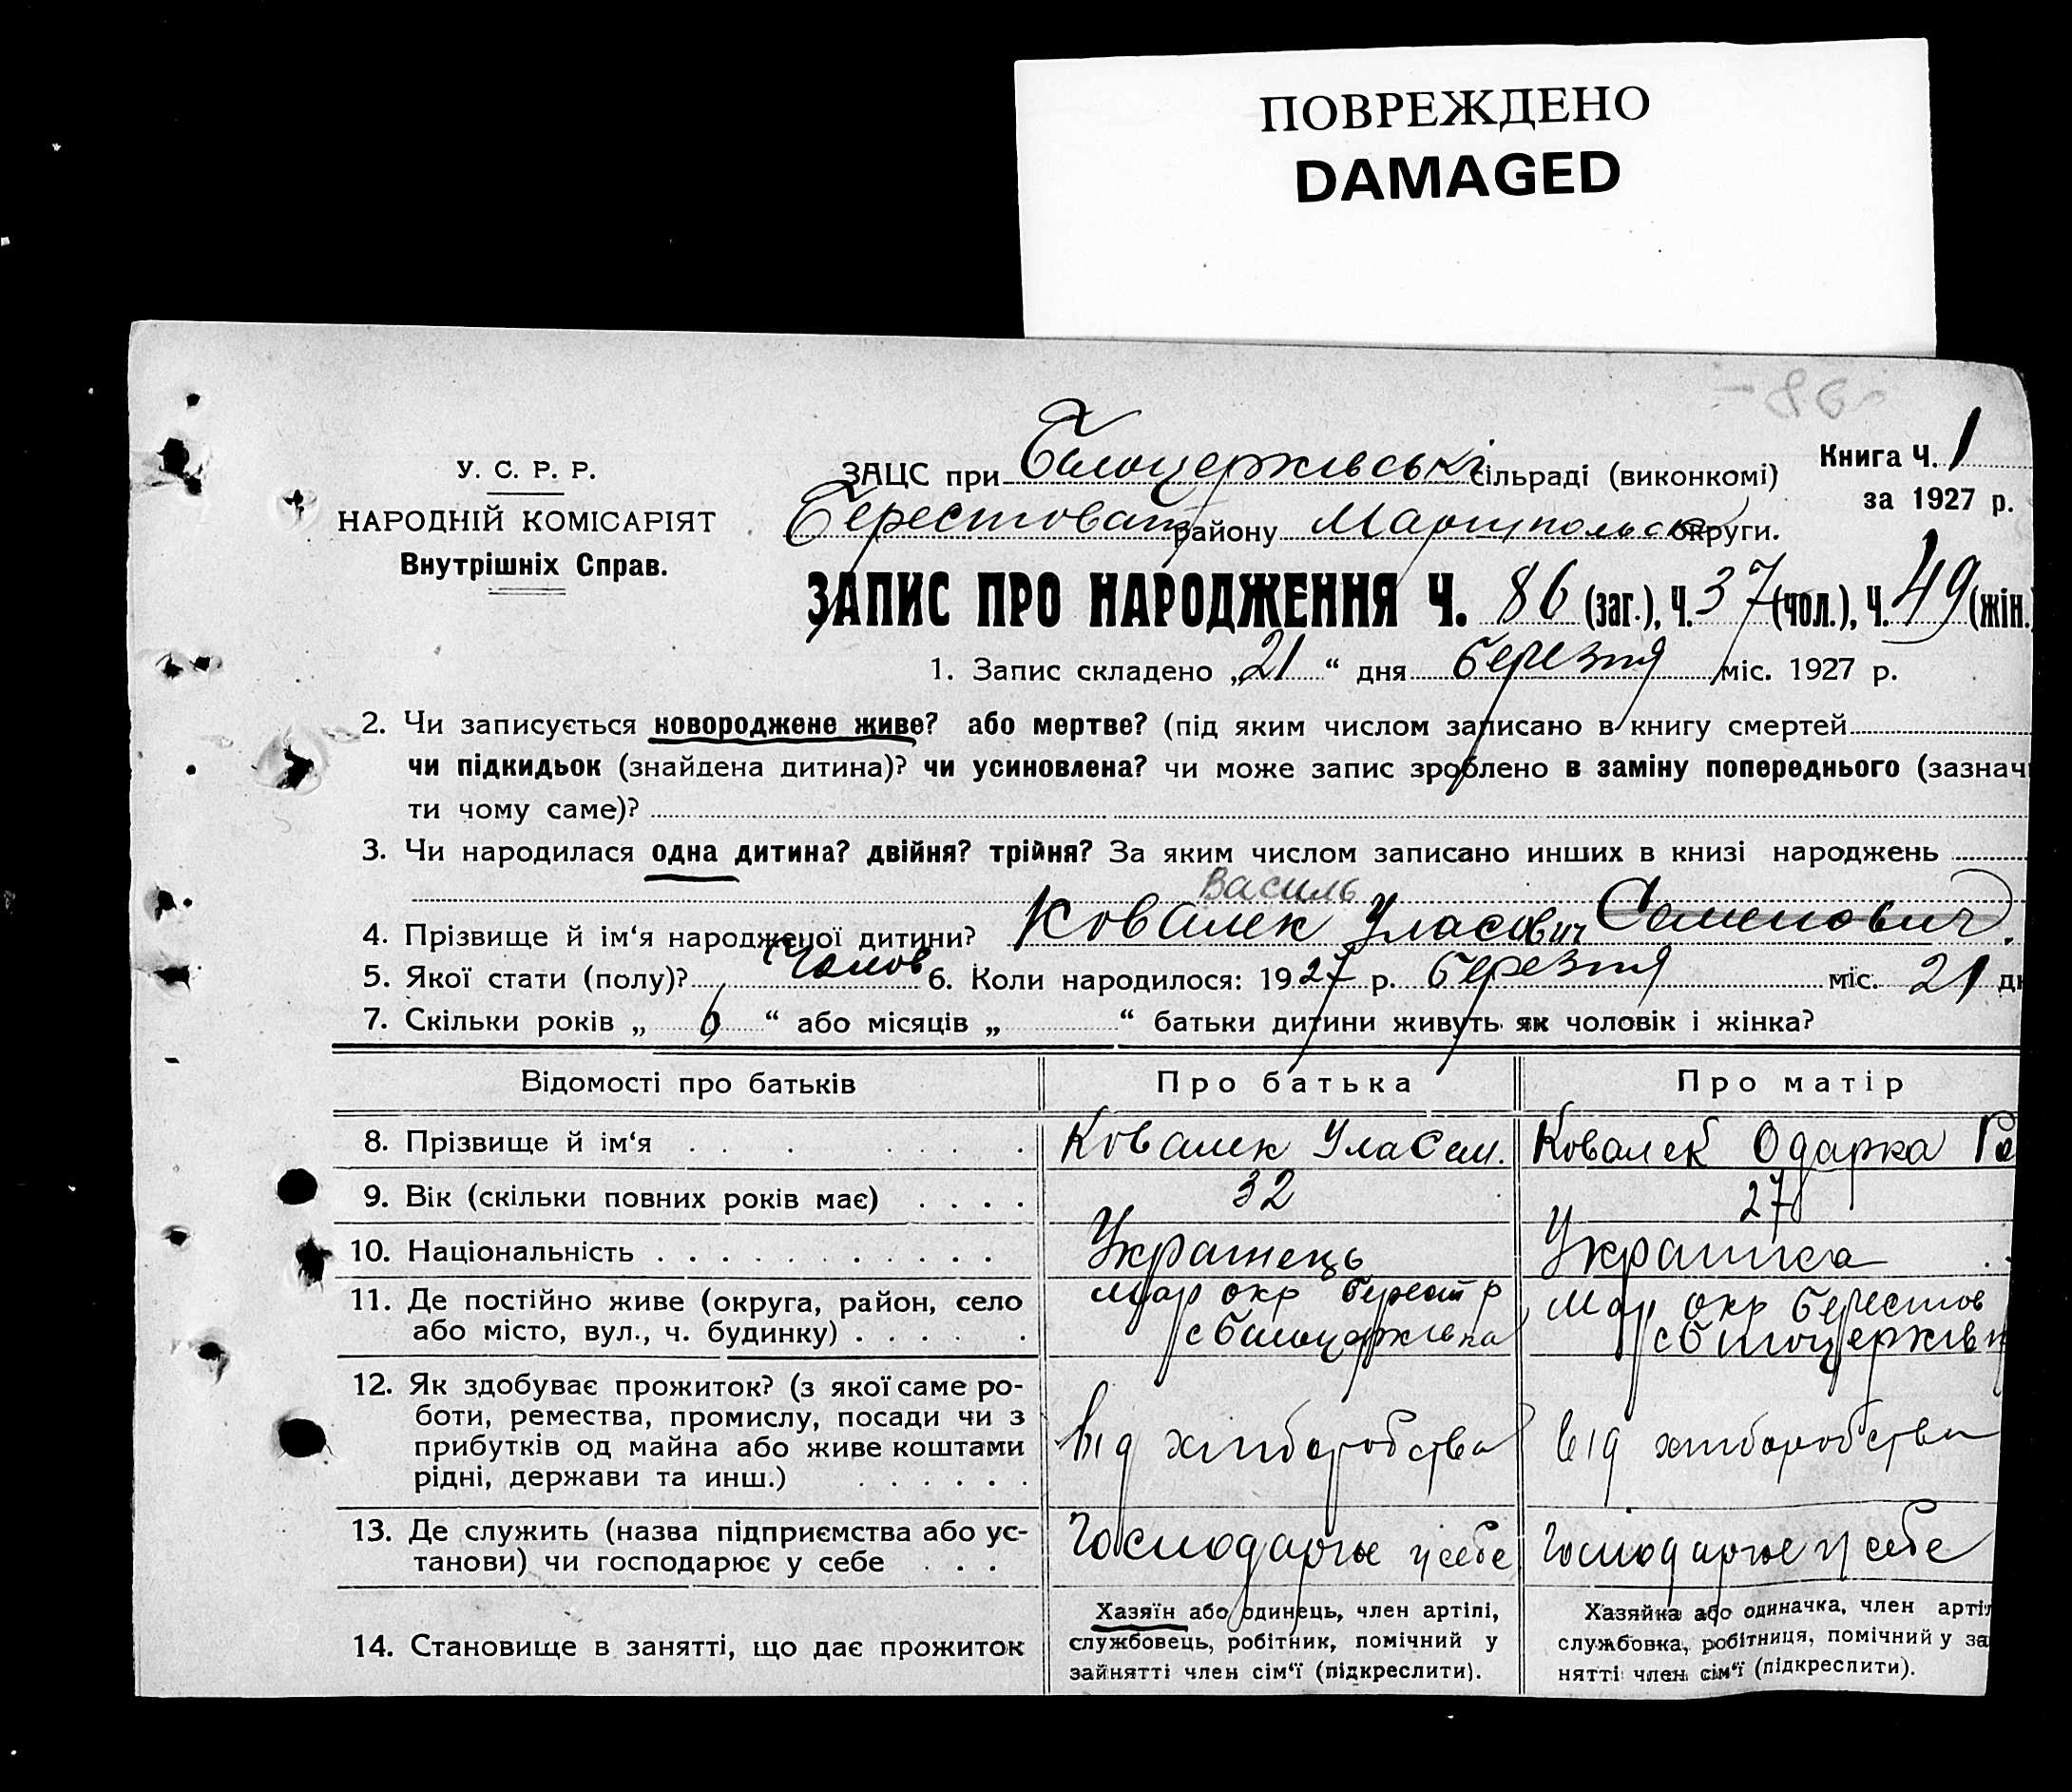 ПОВРЕЖДЕНО
DAMAGED
-86-
У. С. Р. Р.
НАРОДНІЙ КОМІСАРІЯТ
Внутрішніх Справ.
ЗАЦС при Білоцерківські сільраді (виконкомі)
Берестоват району Маріупольськ округи.
Книга Ч. 1
за 1927 р.
ЗАПИС ПРО НАРОДЖЕННЯ Ч. 86 (заг.), Ч. 37 (чол.), Ч. 49 (жін.)
1. Запис складено „21“ дня березня міс. 1927 р.
2. Чи записується новороджене живе? або мертве? (під яким числом записано в книгу смертей
чи підкидьок (знайдена дитина)? чи усиновлена? чи може запис зроблено в заміну попереднього (зазначи
ти чому саме)?
3. Чи народилася одна дитина? двійня? трійня? За яким числом записано инших в книзі народжень
Василь
4. Прізвище й ім‘я народженої дитини? Ковалек Уласович Семенович.
5. Якої стати (полу)? Чолов 6. Коли народилося: 1927 р. березня міс. 21 дн
7. Скільки років „ 6 “ або місяців „ “ батьки дитини живуть як чоловік і жінка?
Відомості про батьків Про батька Про матір
8. Прізвище й ім‘я Ковалек Улас Сем. Ковалек Одарка
9. Вік (скільки повних років має) 32 27
10. Національність Українець Українка
11. Де постійно живе (округа, район, село Мар окр Берест р Мар окр Берестов
або місто, вул., ч. будинку) с Білоцерківка с Білоцерківк
12. Як здобуває прожиток? (з якої саме ро-
боти, ремества, промислу, посади чи з
прибутків од майна або живе коштами від хліборобства від хліборобства
рідні, держави та инш.)
13. Де служить (назва підприємства або ус- Господарює у себе Господарює у себе
танови) чи господарює у себе
Хазяїн або одинець, член артілі, Хазяйка або одиначка, член артіл
14. Становище в занятті, що дає прожиток службовець, робітник, помічний у службовка, робітниця, помічний у за
зайнятті член сім‘ї (підкреслити). нятті член сім‘ї (підкреслити).